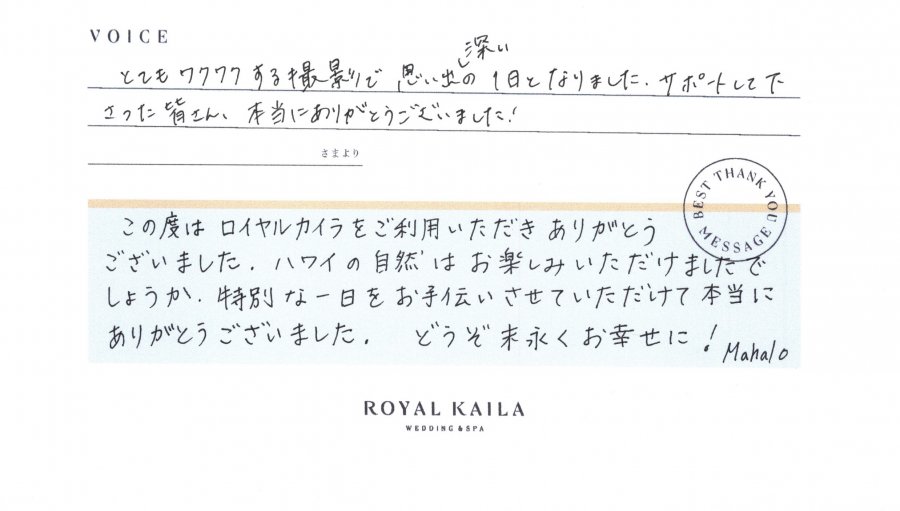 VOICE
とてもワクワクする撮影で思い出深いの1日となりました.サポートして下
さった皆さん、本当にありがとうございました!
さまより
BEST THANK YOU MESSAGE
この度はロイヤルカイラをご利用いただきありがとう
ございました.ハワイの自然はお楽しみいただけましたで
しょうか.特別な一日をお手伝いさせていただけて本当に
ありがとうございました. どうぞ末永くお幸せに!
Mahalo
ROYAL KAILA
WEDDING & SPA